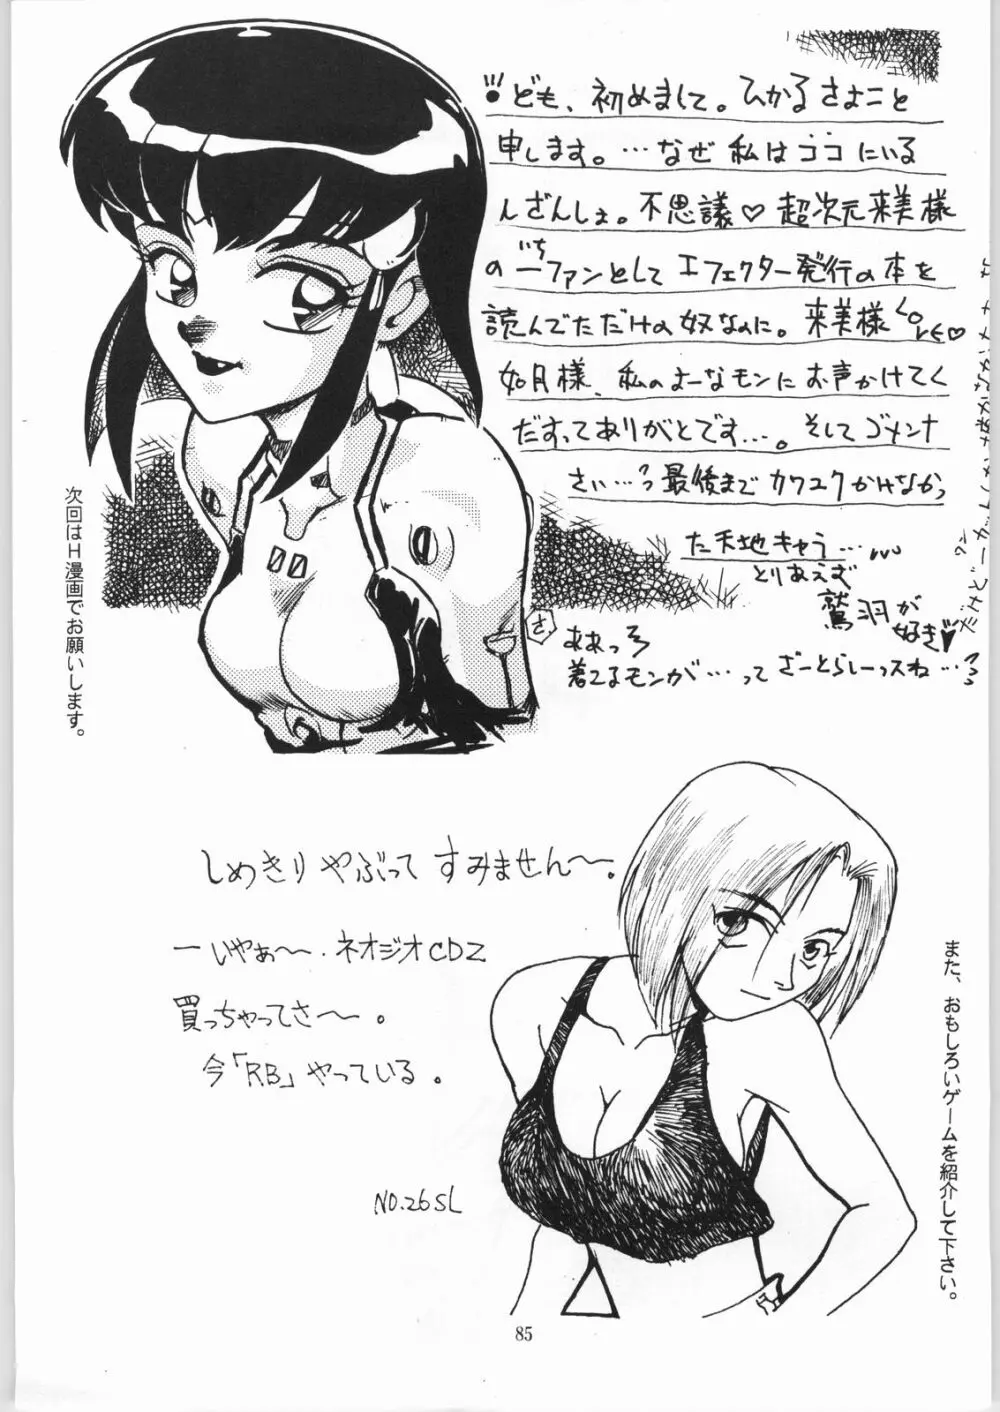 ども、初めまして。ひかるさよこと
申します。…なぜ私はココにいる
んざんしょ。不思議♡超次元来美様
のいち一ファンとしてエフェクター発行の本を
読んでただけの奴なのに。来美様LOVE♡
如月様、私のよーなモンにお声かけてく
だすってありがとです…。そしてゴメンナ
さい…っ最後までカワユクかけなかっ
た天地キャラ…
とりあえず
鷲羽が
好き♥
ああっ
着てるモンが…って ざーとらしーっスね…
次回はH漫画でお願いします。
しめきりやぶってすみません〜。
いやぁ〜.ネオジオCDZ
買っちゃってさ〜。
今「RB」やっている。
NO.26SL
また、おもしろいゲームを紹介して下さい。
85